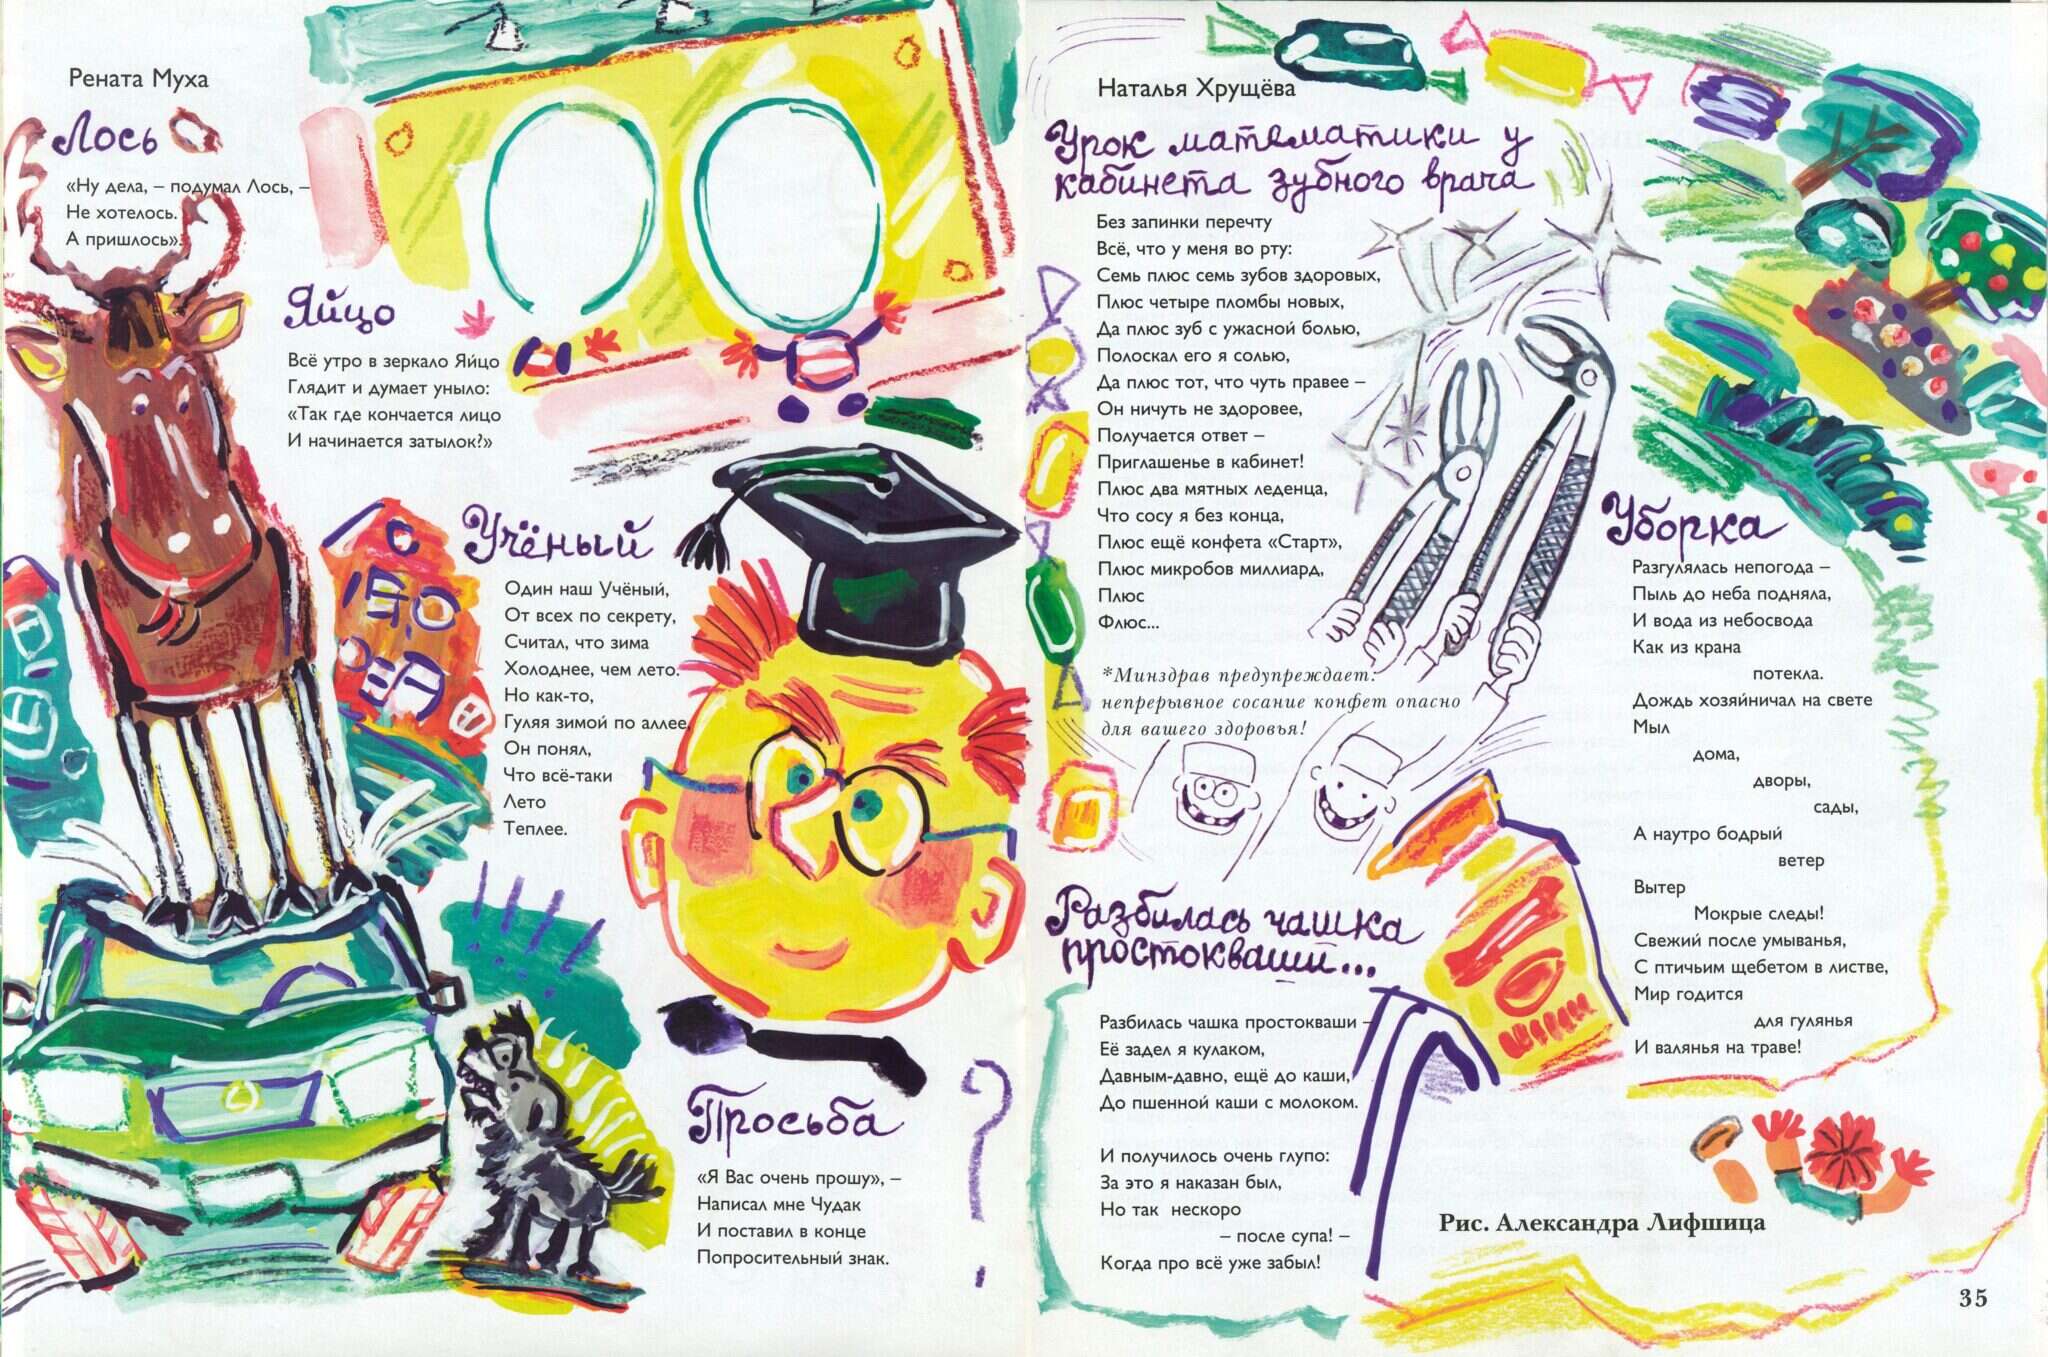 Рената Муха
Лось
«Ну дела, – подумал Лось, –
Не хотелось.
А пришлось».
Яйцо
Всё утро в зеркало Яйцо
Глядит и думает уныло:
«Так где кончается лицо
И начинается затылок?»
Учёный
Один наш Учёный,
От всех по секрету,
Считал, что зима
Холоднее, чем лето.
Но как-то,
Гуляя зимой по аллее,
Он понял,
Что всё-таки
Лето
Теплее.
Просьба
«Я Вас очень прошу», –
Написал мне Чудак
И поставил в конце
Попросительный знак.
Наталья Хрущёва
Урок математики у
кабинета зубного врача
Без запинки перечту
Всё, что у меня во рту:
Семь плюс семь зубов здоровых,
Плюс четыре пломбы новых,
Да плюс зуб с ужасной болью,
Полоскал его я солью,
Да плюс тот, что чуть правее –
Он ничуть не здоровее,
Получается ответ –
Приглашенье в кабинет!
Плюс два мятных леденца,
Что сосу я без конца,
Плюс ещё конфета «Старт»,
Плюс микробов миллиард,
Плюс
Флюс...
*Минздрав предупреждает:
непрерывное сосание конфет опасно
для вашего здоровья!
Разбилась чашка
простокваши...
Разбилась чашка простокваши –
Её задел я кулаком,
Давным-давно, ещё до каши,
До пшенной каши с молоком.
И получилось очень глупо:
За это я наказан был,
Но так нескоро
– после супа! –
Когда про всё уже забыл!
Уборка
Разгулялась непогода –
Пыль до неба подняла,
И вода из небосвода
Как из крана
потекла.
Дождь хозяйничал на свете
Мыл
дома,
дворы,
сады,
А наутро бодрый
ветер
Вытер
Мокрые следы!
Свежий после умыванья,
С птичьим щебетом в листве,
Мир годится
для гулянья
И валянья на траве!
Рис. Александра Лифшица
35